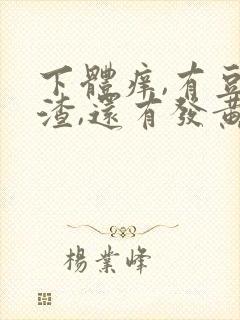 下體痒,有豆
渣,還有發黃
楊業峰